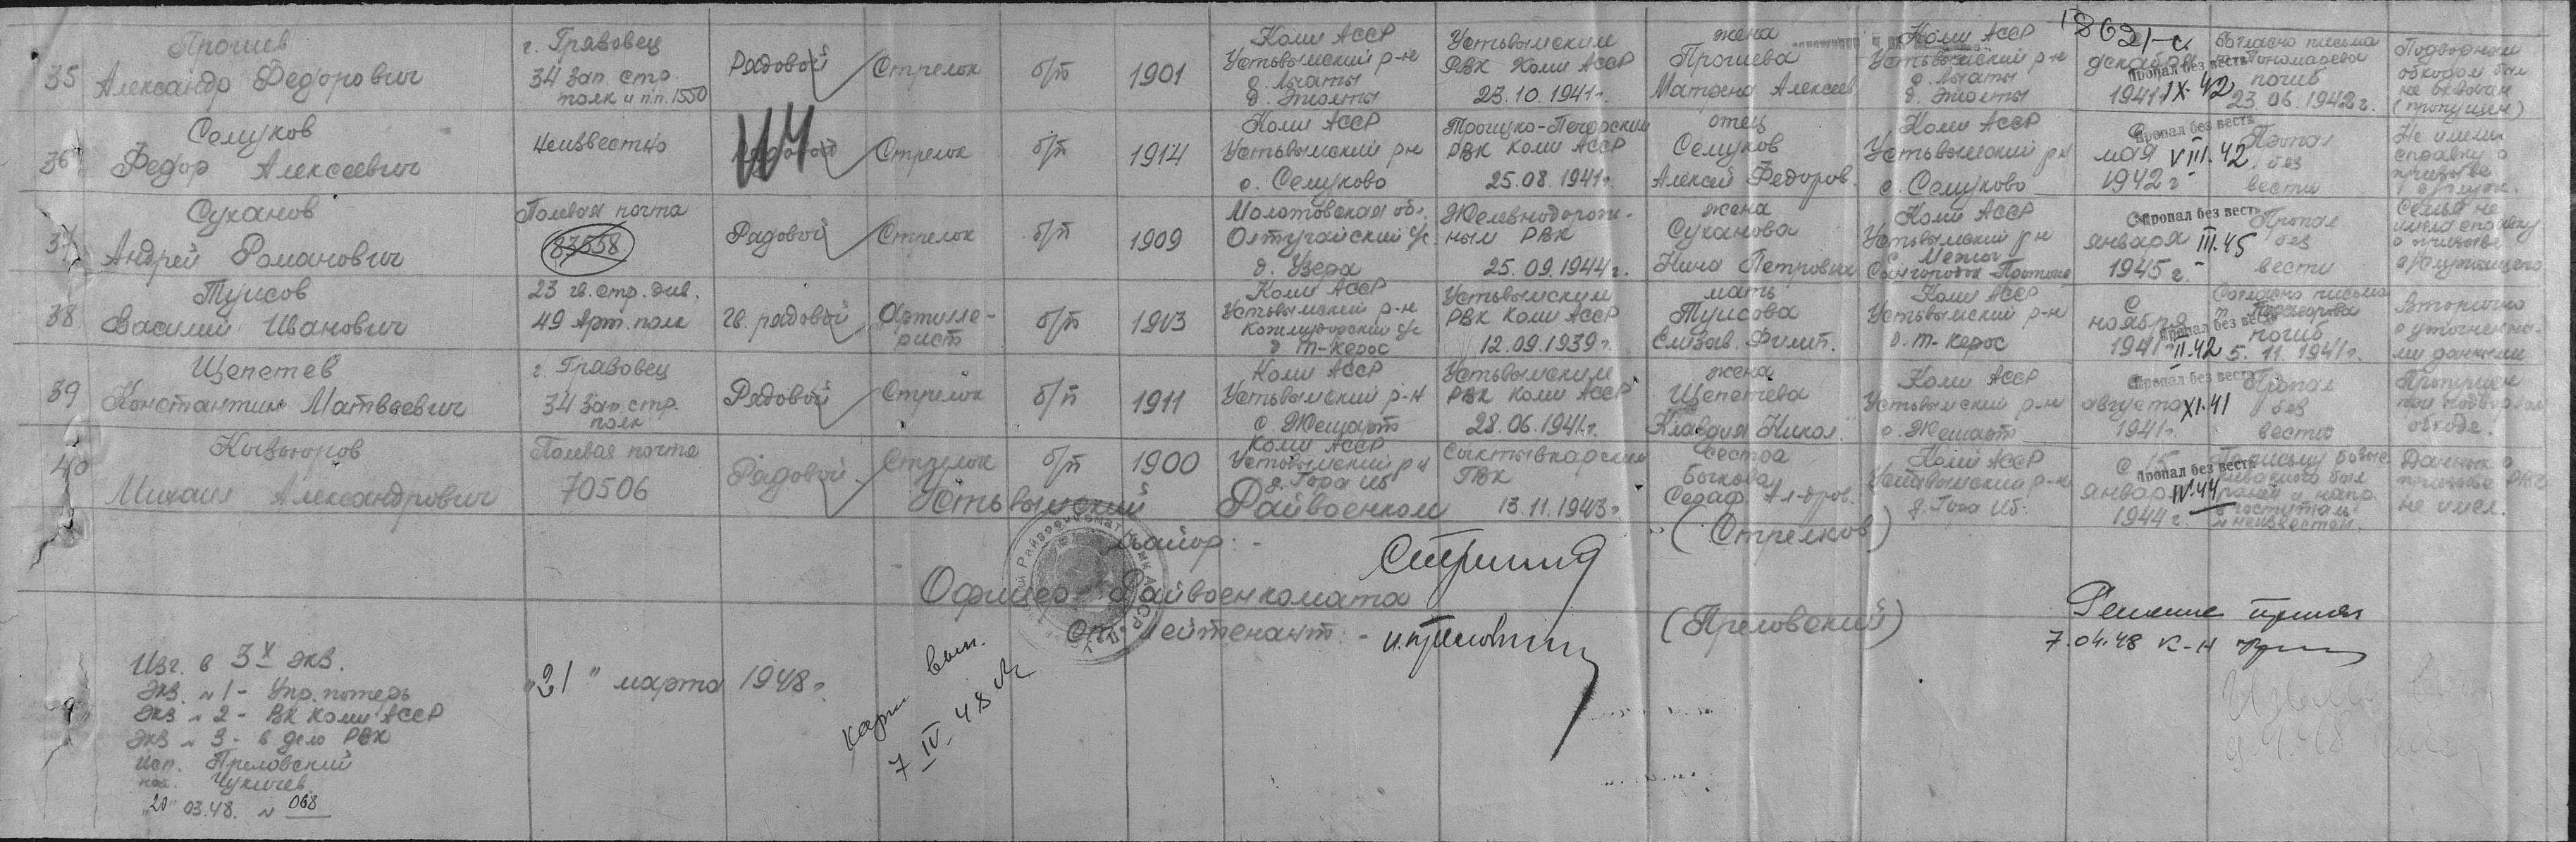 18621-с
35
Прошев
Александр Федорович
г. Грязовец
34 зап. стр.
полк и п.п. 1550
Рядовой
Стрелок
б/п
1901
Коми АССР
Устьвымский р-н
д. Эжолты
Устьвымским
РВК Коми АССР
23.10.1941г.
жена
Прошева
Матрена Алексеев
Коми АССР
Устьвымский р-н
д. Эжолты
декабря
1941
Пропал без вести
IX.42
Согласно письма
Пономарева
погиб
23.06.1942г.
Подворным
обходом был
не включен
(пропущен)
36
Семуков
Федор Алексеевич
Неизвестно
Рядовой
Стрелок
б/п
1914
Коми АССР
Устьвымский р-н
с. Семуково
Троицко-Печорский
РВК Коми АССР
25.08.1941г.
отец
Семуков
Алексей Федоров.
Коми АССР
Устьвымский р-н
с. Семуково
с
мая
1942г
Пропал без вести
VIII.42
Пропал
без
вести
Не имели
справку о
призыве
37
Суханов
Андрей Романович
Полевая почта
83558
Рядовой
Стрелок
б/п
1909
Молотовская обл.
д. Узера
Железнодорож-
ным РВК
25.09.1944г.
жена
Суханова
Нина Петровна
Коми АССР
Устьвымский р-н
с
января
1945г.
Пропал без вести
III.45
Пропал
без
вести
Семья не
имела справку
о призыве
38
Туисов
Василий Иванович
23 гв. стр. див.
49 Арт. полк
Гв. рядовой
Артилле-
рист
б/п
1913
Коми АССР
Устьвымский р-н
д. Т-Керос
Устьвымским
РВК Коми АССР
12.09.1939г.
мать
Туисова
Елизав. Филип.
Коми АССР
Устьвымский р-н
д. Т-Керос
с
ноября
1941
Пропал без вести
II.42
Согласно письма
погиб
5.11.1941г.
Вторично
с уточненны-
ми данными
39
Щепетев
Константин Матвеевич
г. Грязовец
34 зап. стр.
полк
Рядовой
Стрелок
б/п
1911
Коми АССР
Устьвымский р-н
с. Жешарт
Устьвымским
РВК Коми АССР
28.06.1941г.
жена
Щепетева
Клавдия Никол.
Коми АССР
Устьвымский р-н
с. Жешарт
с
августа
1941г.
Пропал без вести
XI.41
Пропал
без
вести
Пропущен
при подворном
обходе.
40
Кызъюров
Михаил Александрович
Полевая почта
70506
Рядовой
Стрелок
б/п
1900
Коми АССР
Устьвымский р-н
д. Гора Иб
Сыктывкарским
ГВК
13.11.1943г.
сестра
Быкова
Сераф. Ал-дров.
Коми АССР
Устьвымский р-н
д. Гора Иб.
с 15
января
1944г.
Пропал без вести
IV.44
ранен и напр.
в госпиталь
неизвестен.
Данных о
призыве РВК
не имел.
Устьвымский Райвоенком
майор: -
(Стрелков)
Офицер Райвоенкомата
ст. лейтенант: -
(Преловский)
Решение принял
7.04.48 к-н
Изг. в 3х экз.
экз. н 1 - Упр. потерь
экз н 2 - ВК Коми АССР
экз н 3 - в дело РВК
исп. Преловский
печ. Чукичев
"20" 03.48. н 068
"21" марта 1948г.
7 IV 48